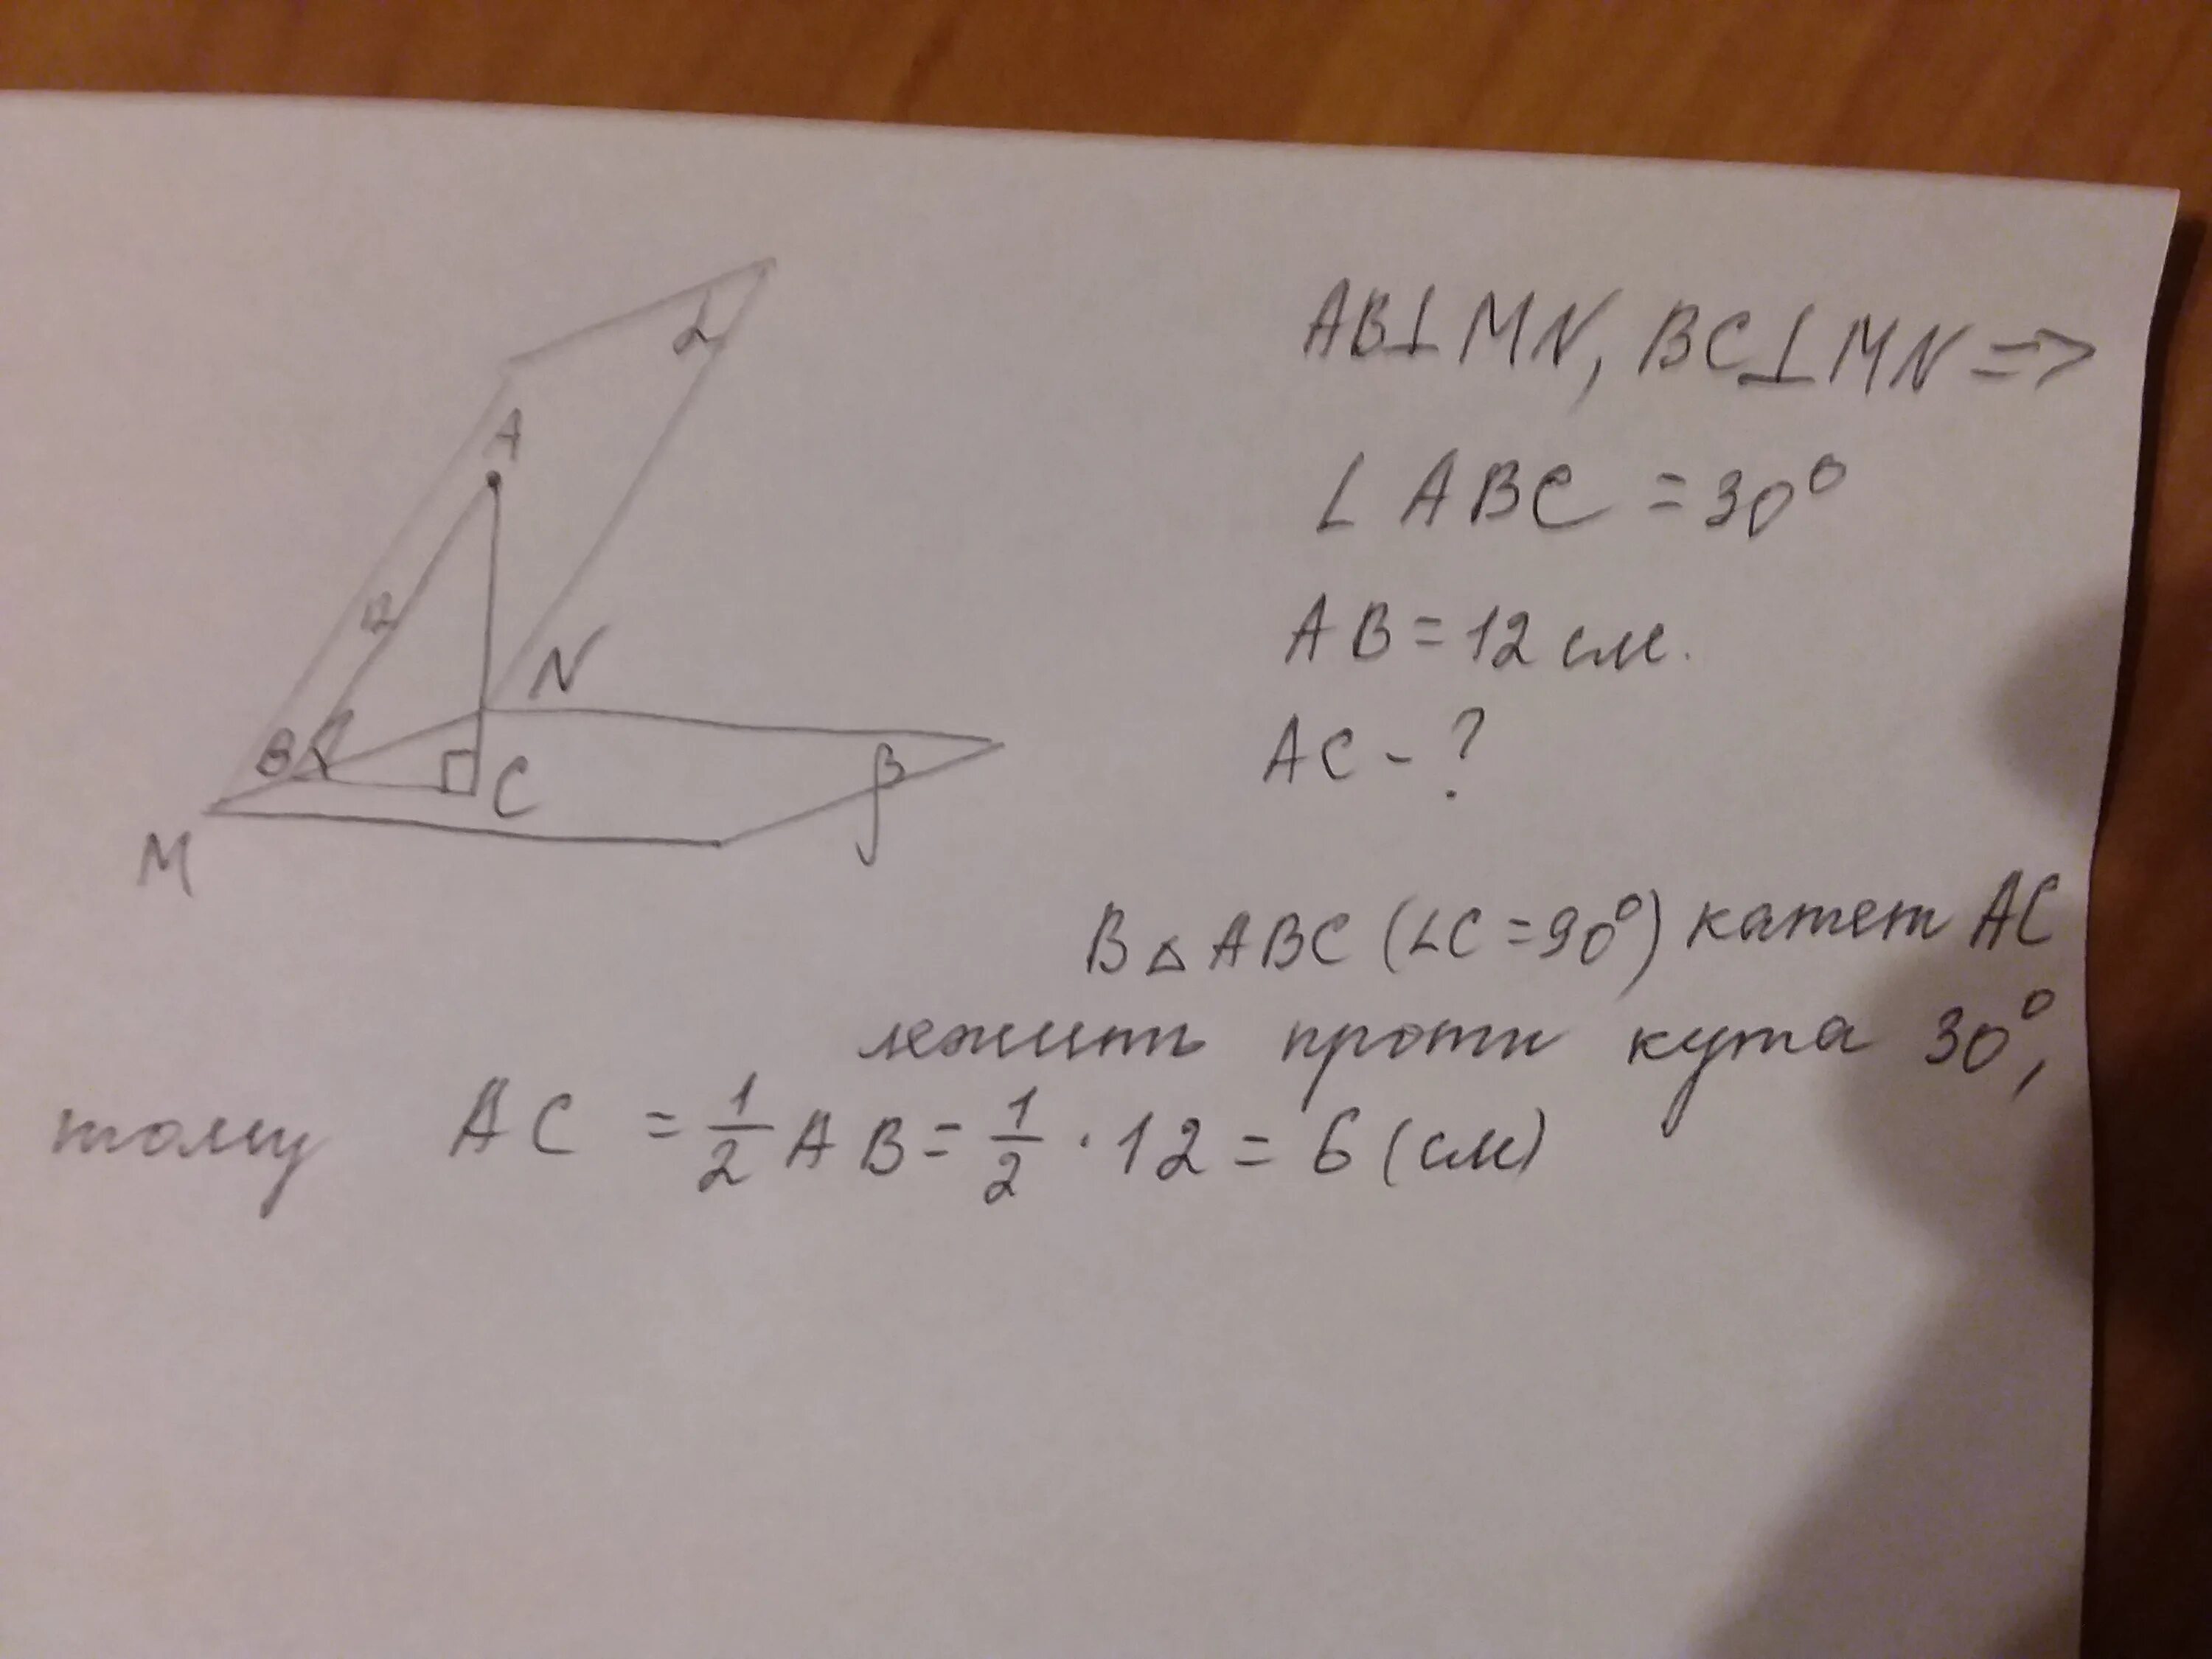 α
A
12
N
B
C
β
M
AB⊥MN, BC⊥MN =>
∠ABC = 30°
AB = 12 см.
AC - ?
В △ABC (∠C = 90°) катет AC
лежить проти кута 30°,
тому AC = 1/2 AB = 1/2 · 12 = 6 (см)